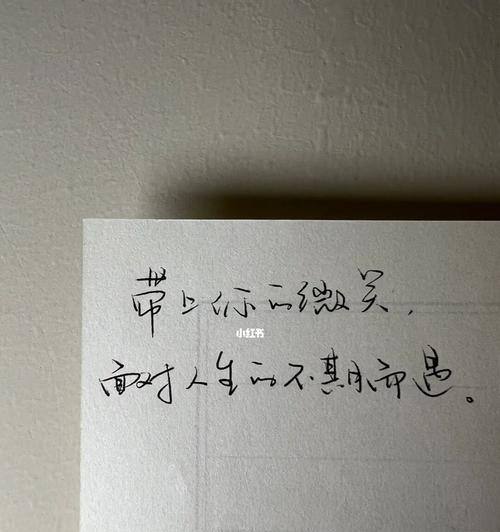 带上你的微笑,
小红书
面对人生的不期而遇。